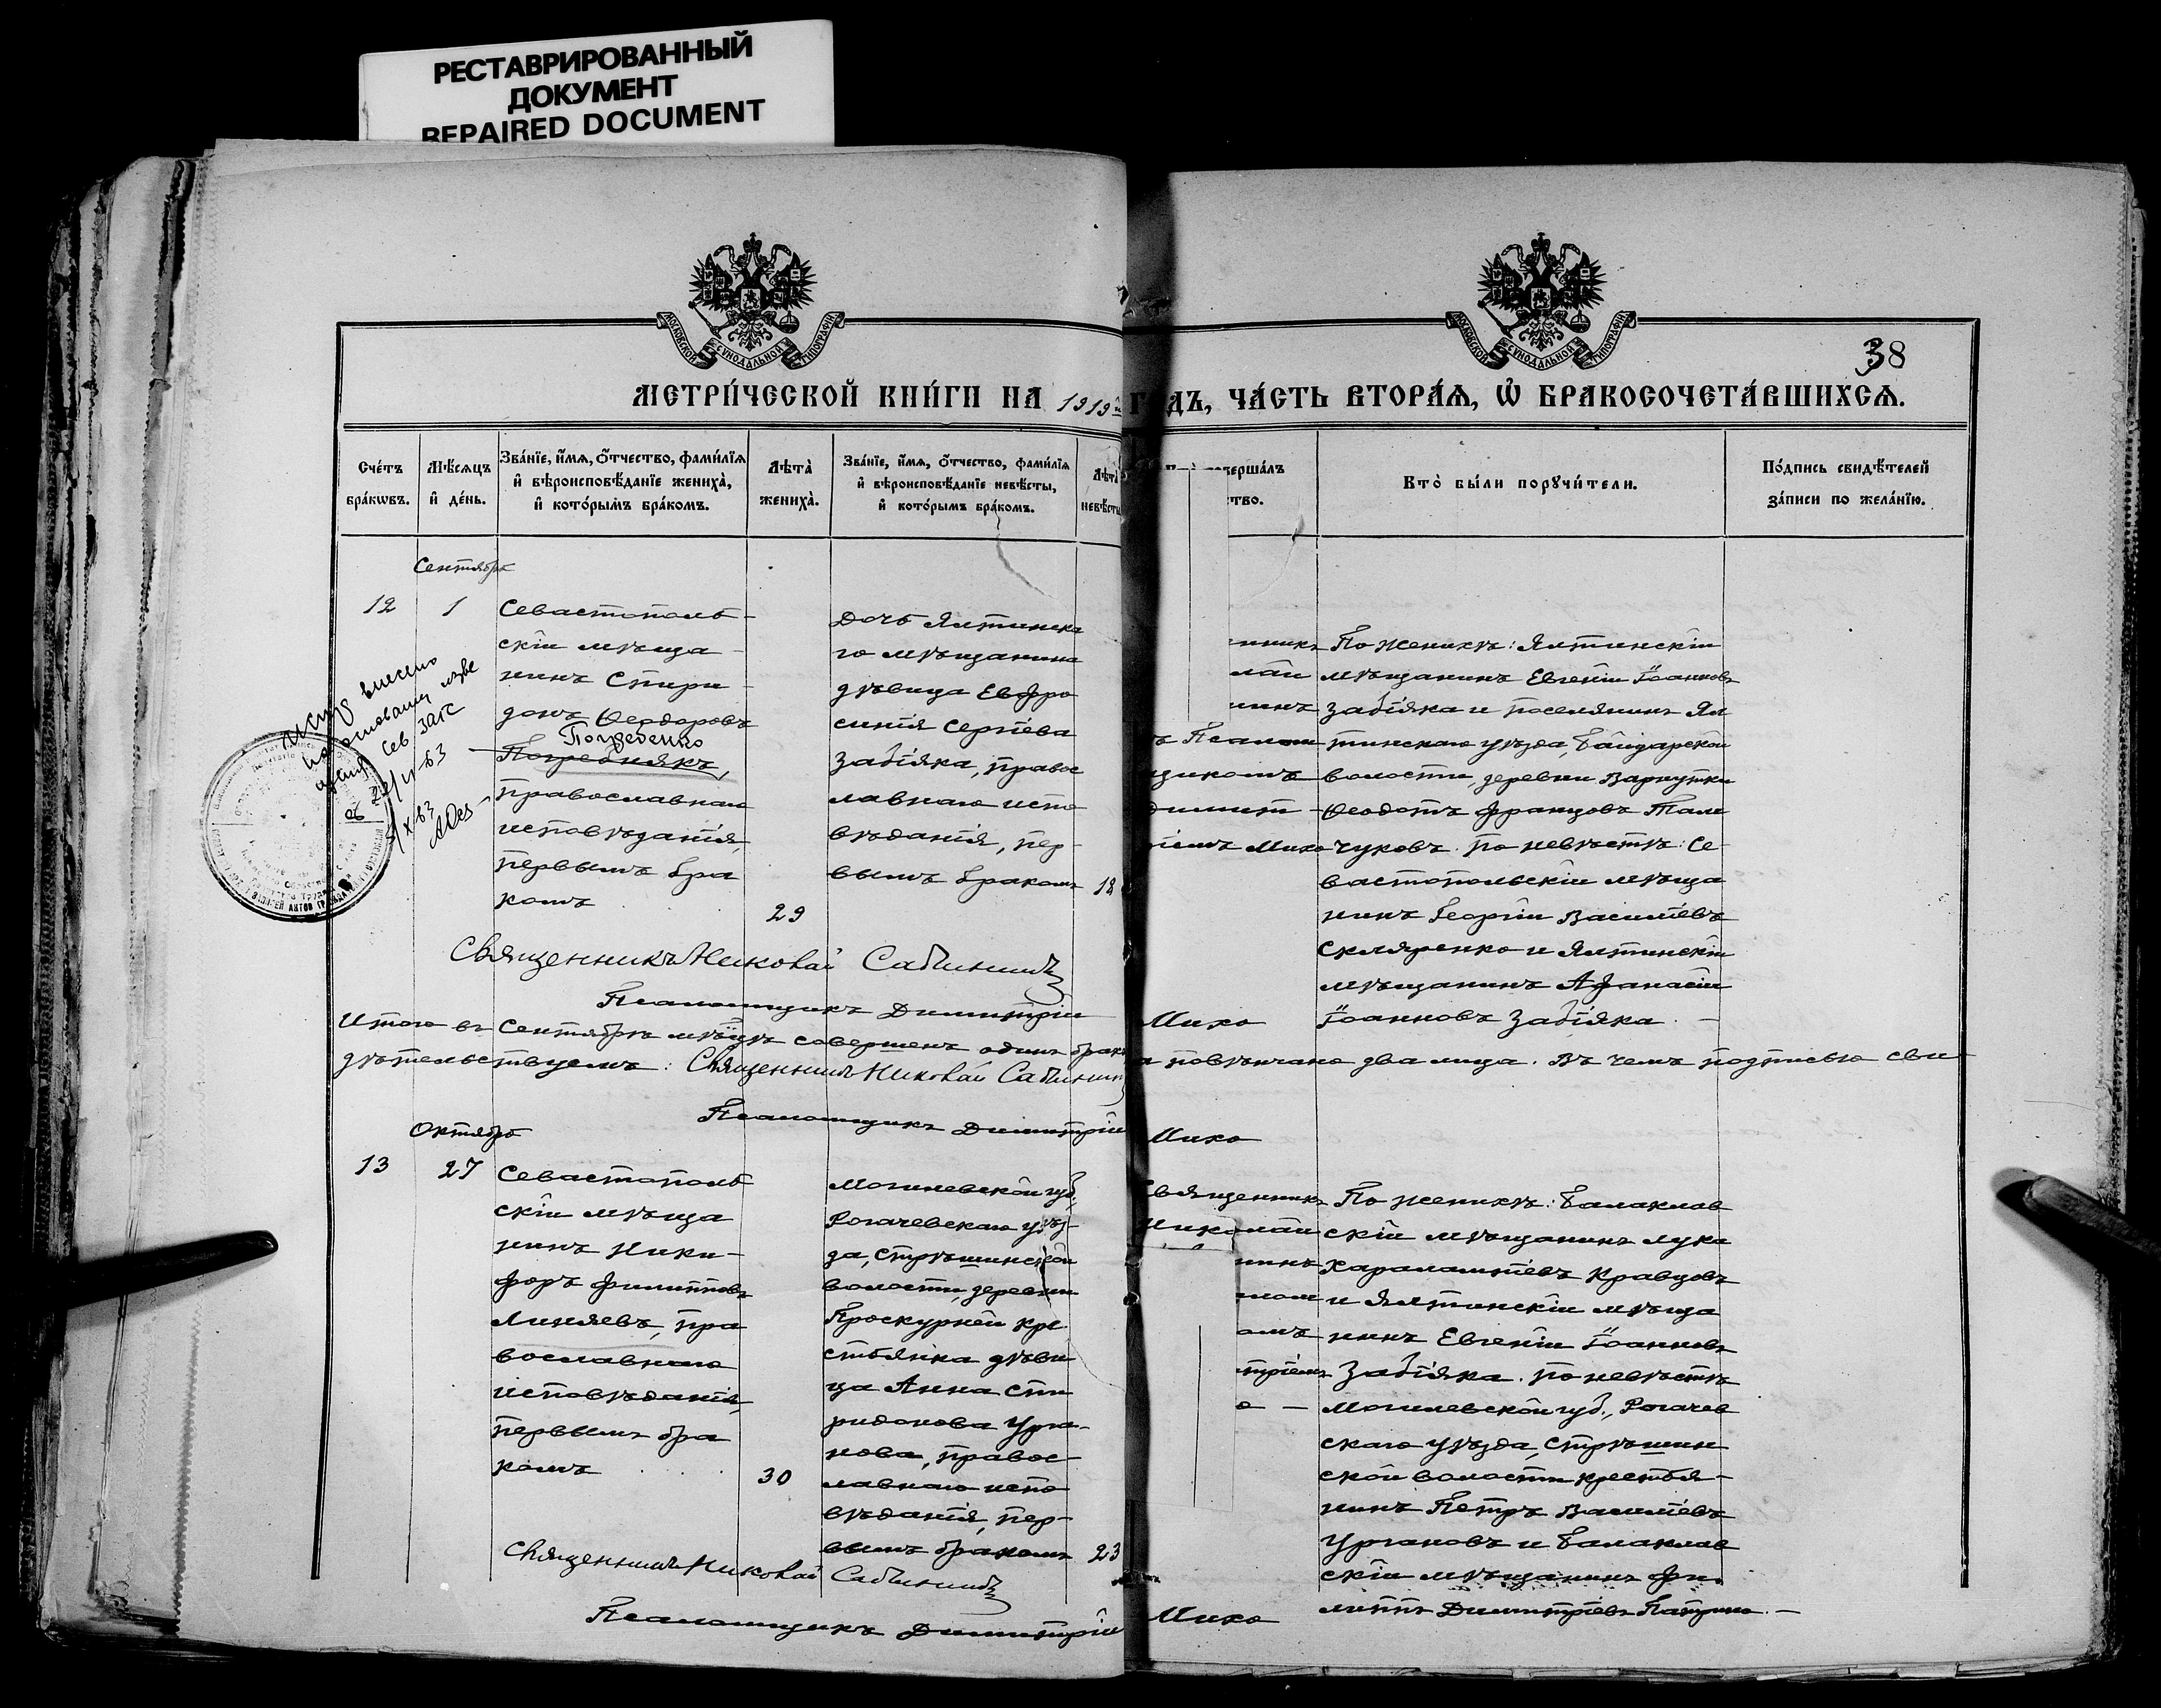 РЕСТАВРИРОВАННЫЙ
ДОКУМЕНТ
REPAIRED DOCUMENT
МОСКОВСКОЙ СѴНОДАЛЬНОЙ ТИПОГРАФІИ
МОСКОВСКОЙ СѴНОДАЛЬНОЙ ТИПОГРАФІИ
38
МЕТРИ́ЧЕСКОЙ КНИ́ГИ НА 1919й Г ДЪ, ЧА́СТЬ ВТОРА́Ѧ, Ѽ БРАКОСОЧЕТА́ВШИХСѦ.
Сче́тъ бра́кѡвъ.
Мѣ́сѧцъ и҆ де́нь.
Зва́нїе, и҆́мѧ, ѻ҆́тчество, фами́лїѧ
и҆ вѣроисповѣ́данїе жениха̀,
и҆ кото́рымъ бра́комъ.
Лѣта̀ жениха̀.
Зва́нїе, и҆́мѧ, ѻ҆́тчество, фами́лїѧ
и҆ вѣроисповѣ́данїе невѣ́сты,
и҆ кото́рымъ бра́комъ.
Лѣта̀ невѣ́сты
ерша́лъ
тво.
Кто̀ бы́ли порꙋчи́тели.
По́дпись свидѣ́телей
за́писи по жела́нїю.
Сентябрь
12
1
Севастополь-
скій мѣща-
нинъ Спири-
донъ Ѳеодоровъ
Погребенко
Погребнякъ,
православнаго
исповѣданія,
первымъ бра
комъ
29
Дочь Ялтинска
го мѣщанина
дѣвица Евфро
синія Сергіева
Забіяка, правос
лавнаго испо
вѣданія, пер-
вымъ бракомъ
18
нникъ
лай
нинъ
ъ Псалом
щикомъ
Димит-
ріемъ Михо
По женихѣ: Ялтинскій
мѣщанинъ Евгеній Іоанновъ
Забіяка и поселянинъ Ял
тинскаго уѣзда, Байдарской
волости, деревни Варнутки
Ѳеодотъ Францовъ
чуковъ. по невѣстѣ: Се-
вастопольскій мѣща
нинъ Георгій Василіевъ
Скляренко и Ялтинскій
мѣщанинъ Афанасій
Іоанновъ Забіяка. —
Священникъ Николай Сабининъ
Псаломщикъ Димитрій Михо
Итого въ Сентябрѣ мѣсцѣ совершенъ одинъ бракъ и повѣнчано два лица. Въ чемъ подписью сви-
дѣтельствуемъ: Священникъ Николай Сабининъ
Псаломщикъ Димитрій Михо
Октябрь
13
27
Севастополь
скій мѣща
нинъ Ники-
форъ Филипповъ
Линяевъ, пра
вославнаго
исповѣданія,
первымъ бра
комъ
30
Могилевской губ.,
Рогачевскаго уѣз-
да, Стрѣшинской
волости, деревни
Проскурней кре
стьянка дѣви
ца Анна Спи
ридонова Урга-
нова, правос-
лавнаго испо
вѣданія, пер-
вымъ бракомъ
23
Священникъ
Николай
нинъ
лом
омъ
тріемъ
о —
По женихѣ: Балаклав
скій мѣщанинъ Лука
Харалампіевъ Кравцовъ
и Ялтинскій мѣща
нинъ Евгеній Іоанновъ
Забіяка. по невѣстѣ
Могилевской губ., Рогачев
скаго уѣзда, Стрѣшин
ской волости крестья-
нинъ Петръ Василіевъ
Ургановъ и Балаклав
скій мѣщанинъ Фи-
липпъ Димитріевъ —
Священникъ Николай Сабининъ
Псаломщикъ Димитрій Михо